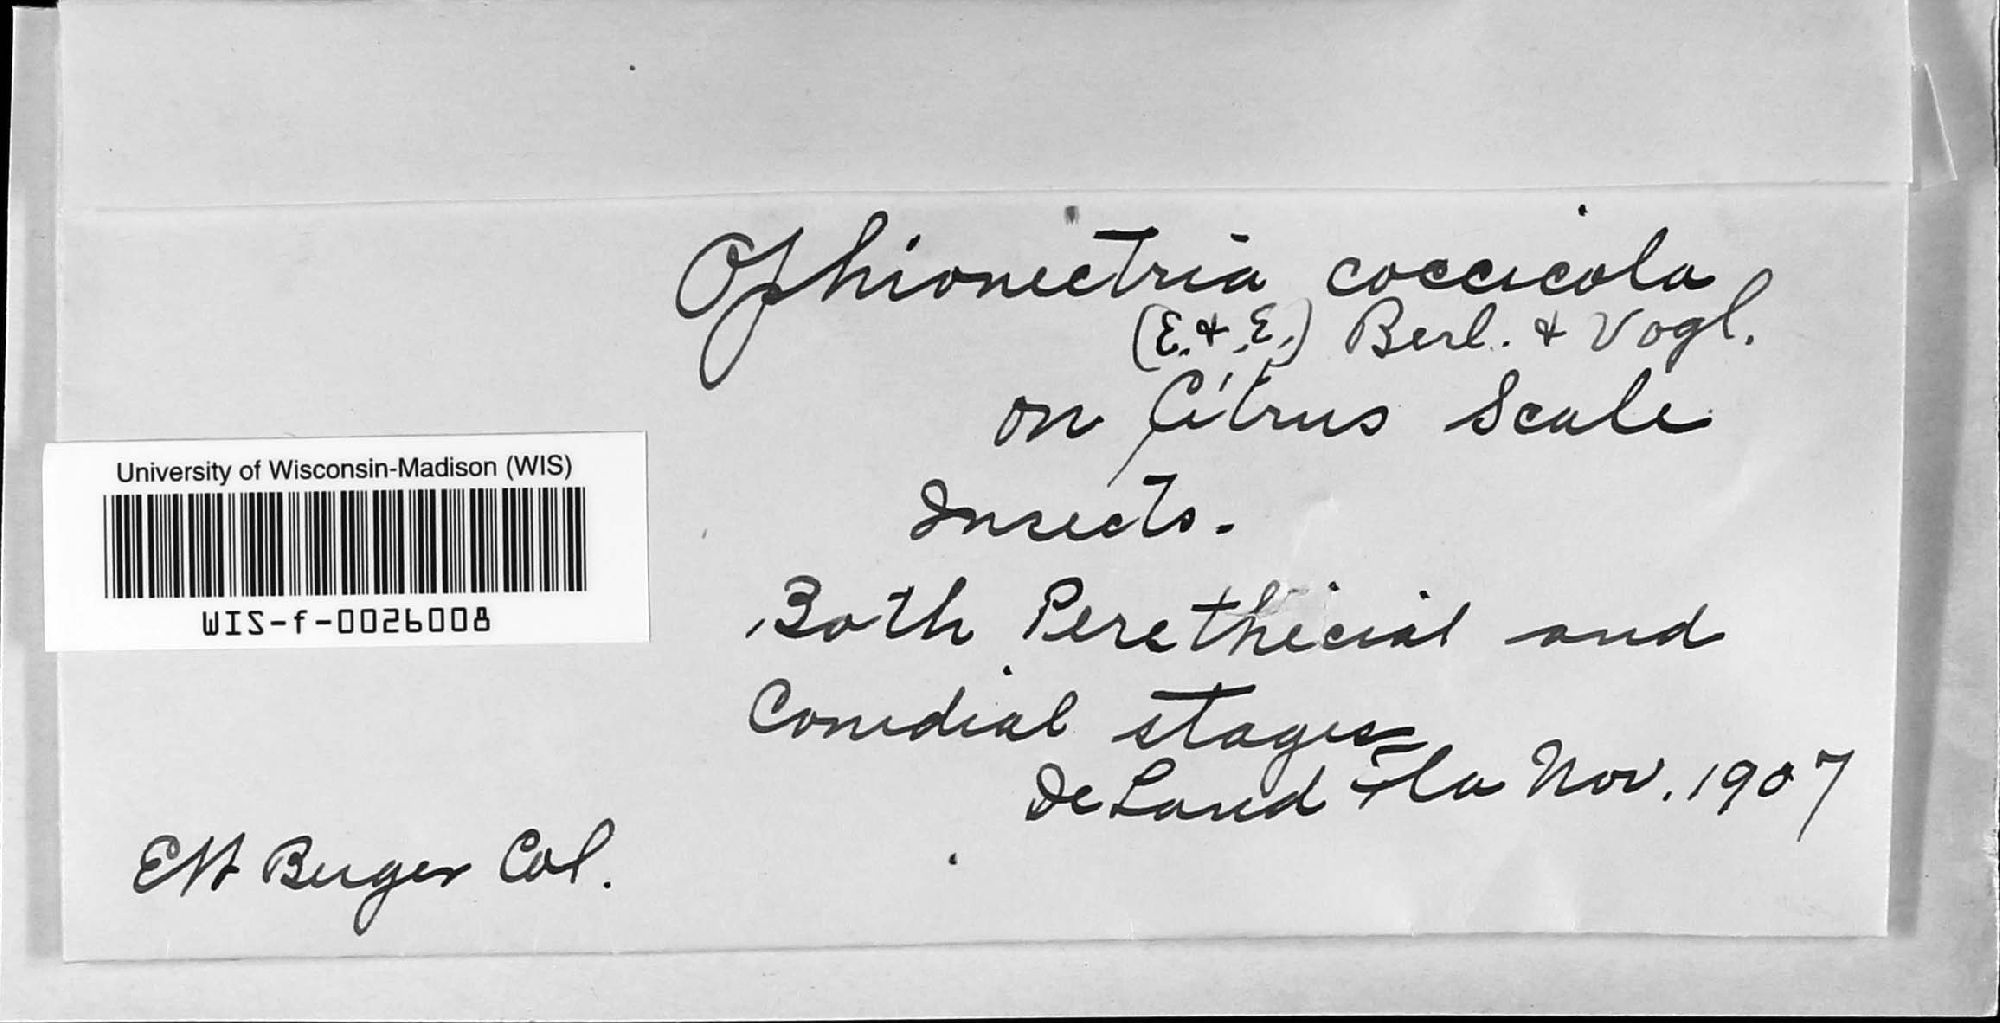 Ophionectria coccicola
(E. & E.) Berl. & Vogl.
on Citrus Scale
Insects.
Both Perethecial and
Conidial stages
De Land Fla Nov. 1907
EW Berger Col.
University of Wisconsin-Madison (WIS)
WIS-f-0026008